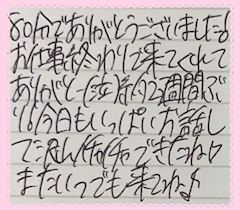 80分でありがとうございました!
お仕事終わりで来てくれて
ありがとー(泣)約2週間ぶ
り!!今日もいっぱいお話し
て楽しくイチャイチャできたね♪
またいつでも来てね♪